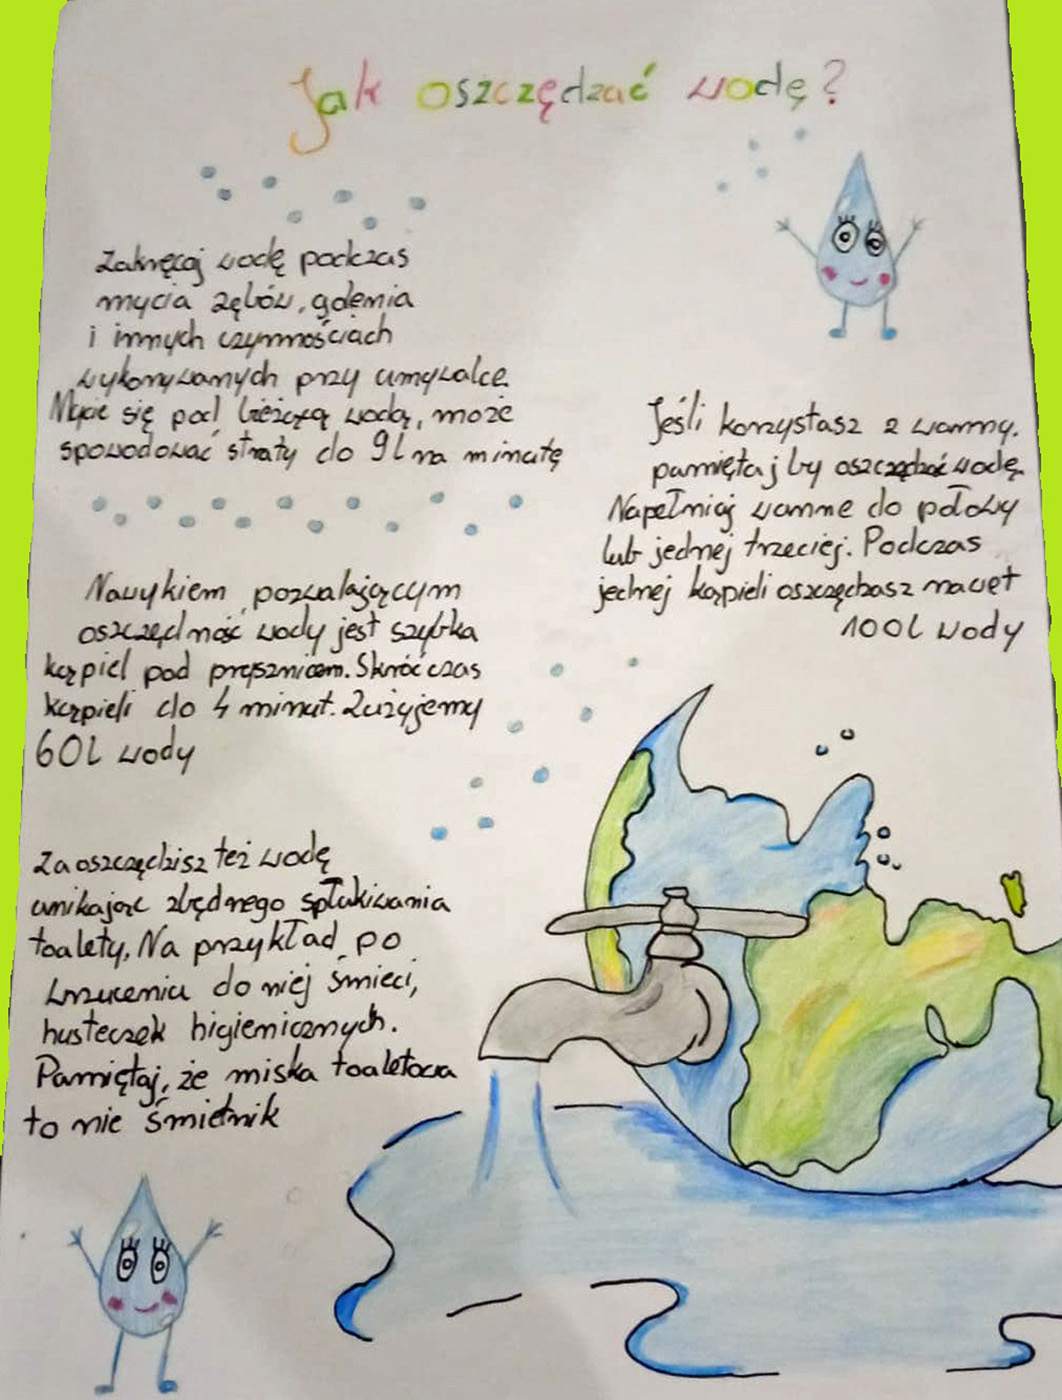 Jak oszczędzać wodę?
Zakręcaj wodę podczas
mycia zębów, golenia
i innych czynnościach
wykonywanych przy umywalce.
Mycie się pod bieżącą wodą, może
spowodować straty do 9l na minutę
Jeśli korzystasz z wanny.
pamiętaj by oszczędzać wodę.
Napełniaj wanne do połowy
lub jednej trzeciej. Podczas
jednej kąpieli oszczędzasz nawet
100l wody
Nawykiem pozwalającym
oszczędność wody jest szybka
kąpiel pod prysznicem. Skróć czas
kąpieli do 4 minut. Zużyjemy
60l wody
Zaoszczędzisz też wodę
unikając zbędnego spłukiwania
toalety. Na przykład po
wrzuceniu do niej śmieci,
husteczek higienicznych.
Pamiętaj, że miska toaletowa
to nie śmietnik